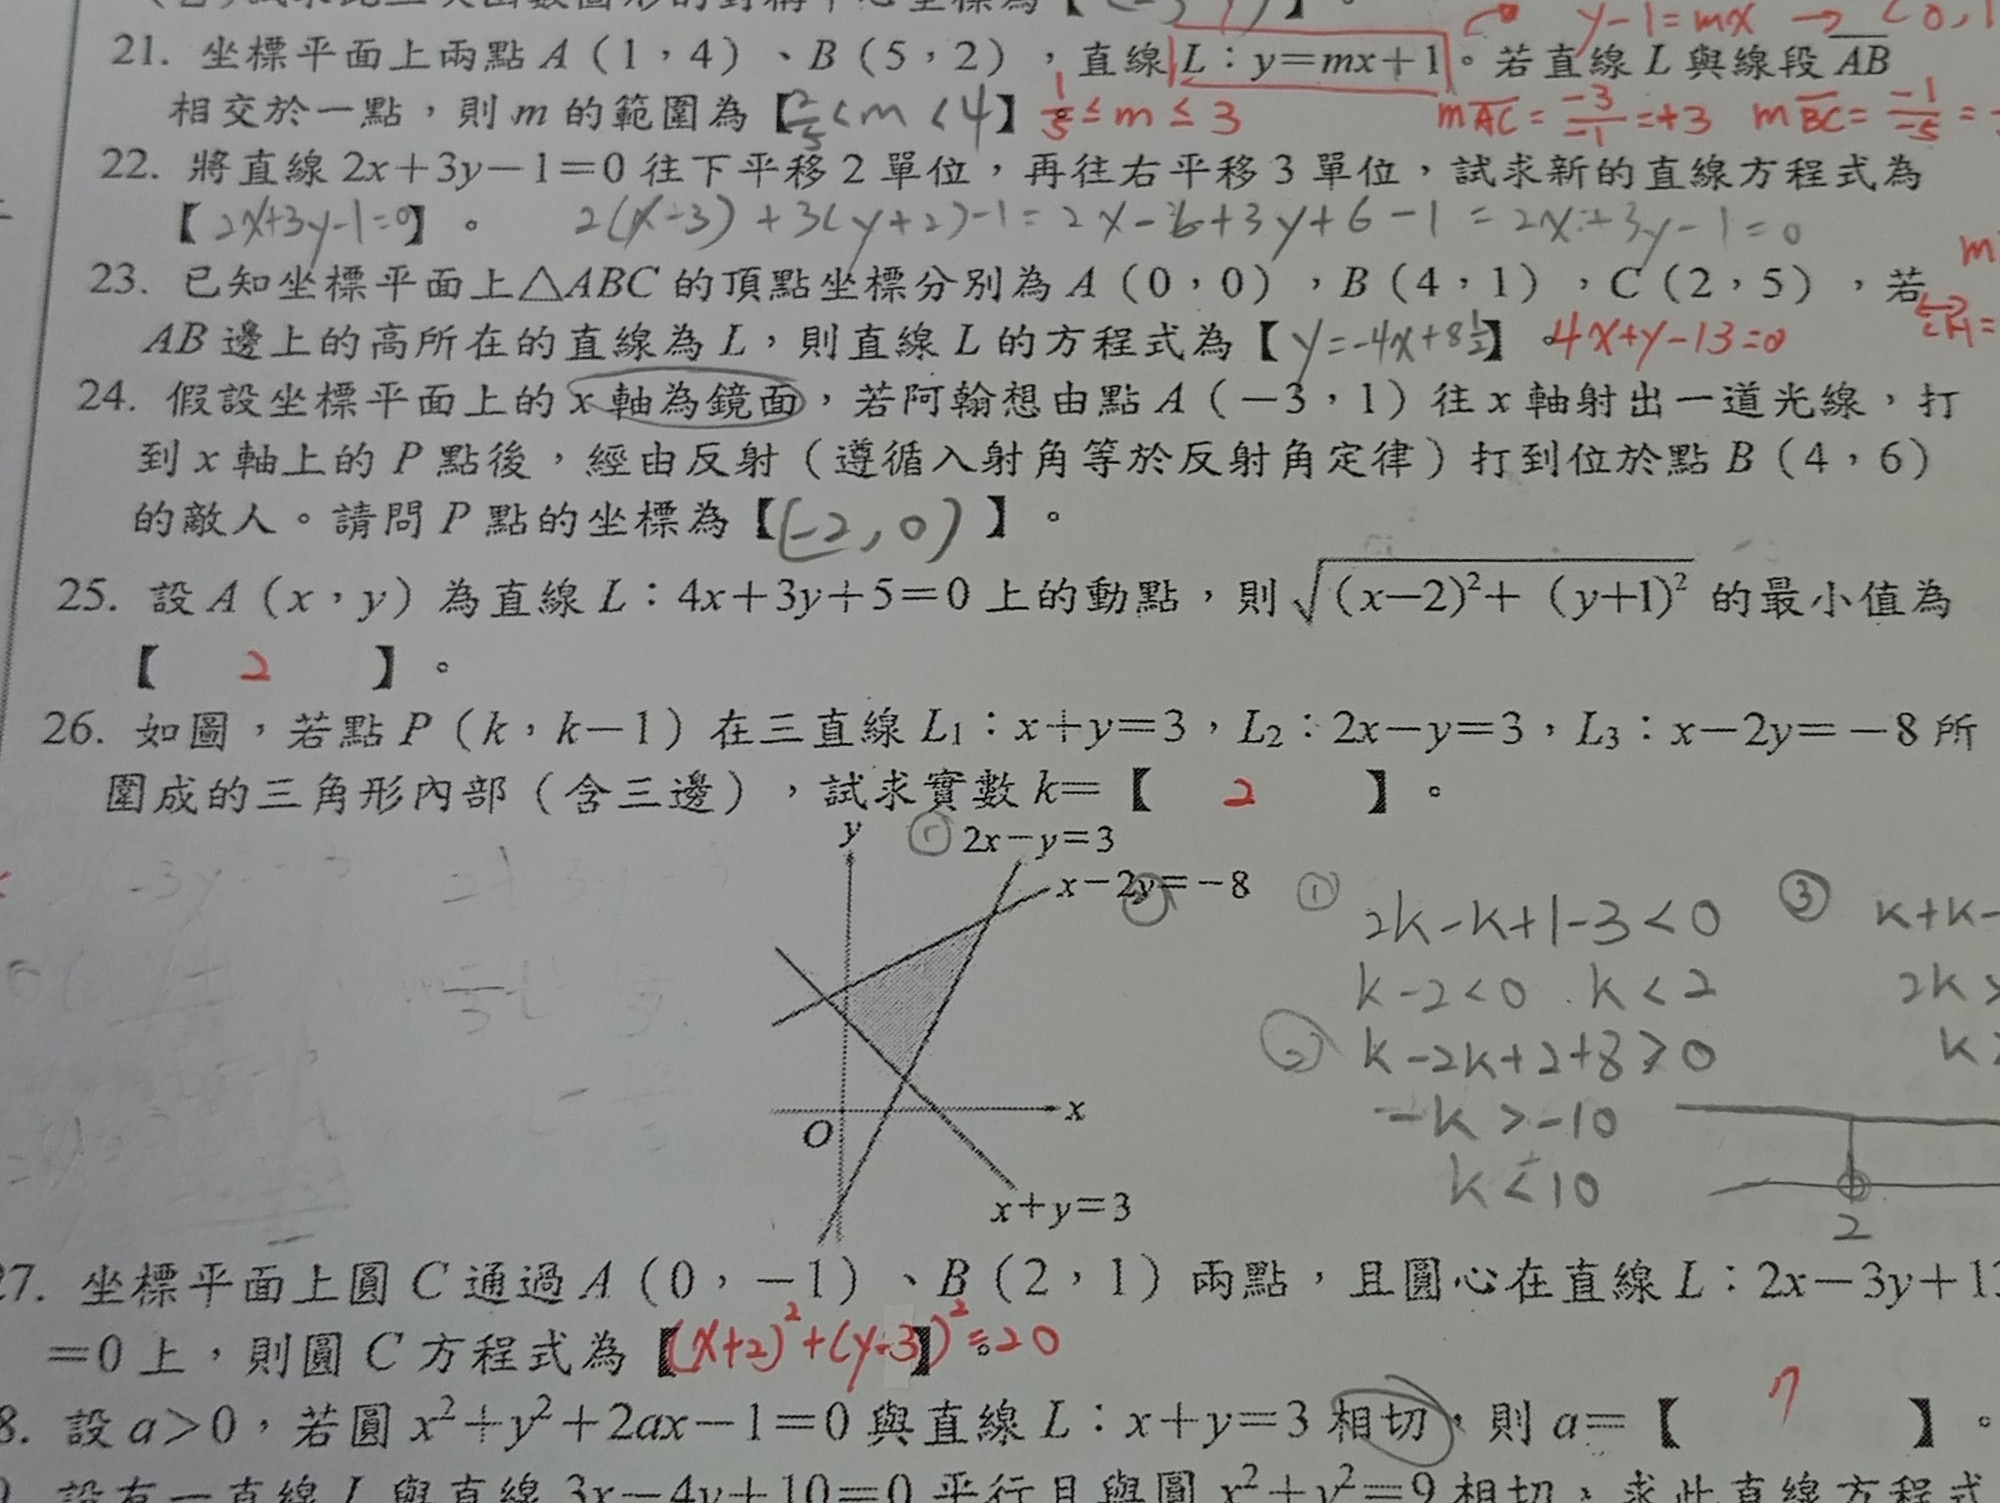 21. 坐標平面上兩點 A（1，4）、B（5，2），直線 L：y=mx+1。若直線 L 與線段 AB
y-1=mx → (0,1
相交於一點，則 m 的範圍為【 <m<4】 1/5≤m≤3 mAC=-3/-1=+3 mBC=-1/-5=
22. 將直線 2x+3y-1=0 往下平移 2 單位，再往右平移 3 單位，試求新的直線方程式為
【2x+3y-1=0】。 2(x-3)+3(y+2)-1=2x-6+3y+6-1=2x+3y-1=0
23. 已知坐標平面上△ABC 的頂點坐標分別為 A（0，0），B（4，1），C（2，5），若
AB 邊上的高所在的直線為 L，則直線 L 的方程式為【y=-4x+8½】 4x+y-13=0
24. 假設坐標平面上的 x 軸為鏡面，若阿翰想由點 A（-3，1）往 x 軸射出一道光線，打
到 x 軸上的 P 點後，經由反射（遵循入射角等於反射角定律）打到位於點 B（4，6）
的敵人。請問 P 點的坐標為【(-2,0)】。
25. 設 A（x，y）為直線 L：4x+3y+5=0 上的動點，則 √(x-2)²+（y+1)² 的最小值為
【 2 】。
26. 如圖，若點 P（k，k-1）在三直線 L₁：x+y=3，L₂：2x-y=3，L₃：x-2y=-8 所
圍成的三角形內部（含三邊），試求實數 k=【 2 】。
y ① 2x-y=3
x-2y=-8 ②
x
O
x+y=3
① 2k-k+1-3<0
k-2<0 k<2
② k-2k+2+8>0
-k>-10
k<10
③ k+k-
2k>
k>
2
27. 坐標平面上圓 C 通過 A（0，-1）、B（2，1）兩點，且圓心在直線 L：2x-3y+13
=0 上，則圓 C 方程式為【(x+2)²+(y-3)²=20】。
8. 設 a>0，若圓 x²+y²+2ax-1=0 與直線 L：x+y=3 相切，則 a=【 7 】。
設有一直線 L 與直線 3x-4y+10=0 平行且與圓 x²+y²=9 相切，求此直線方程式